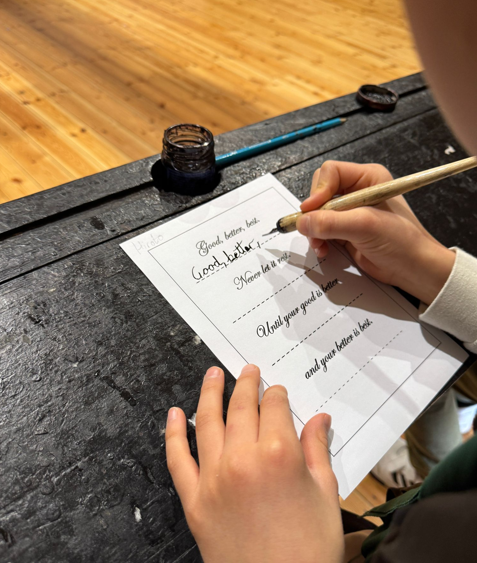 Good, better, best.
Good, better,
Never let it rest.
Until your good is better
and your better is best.